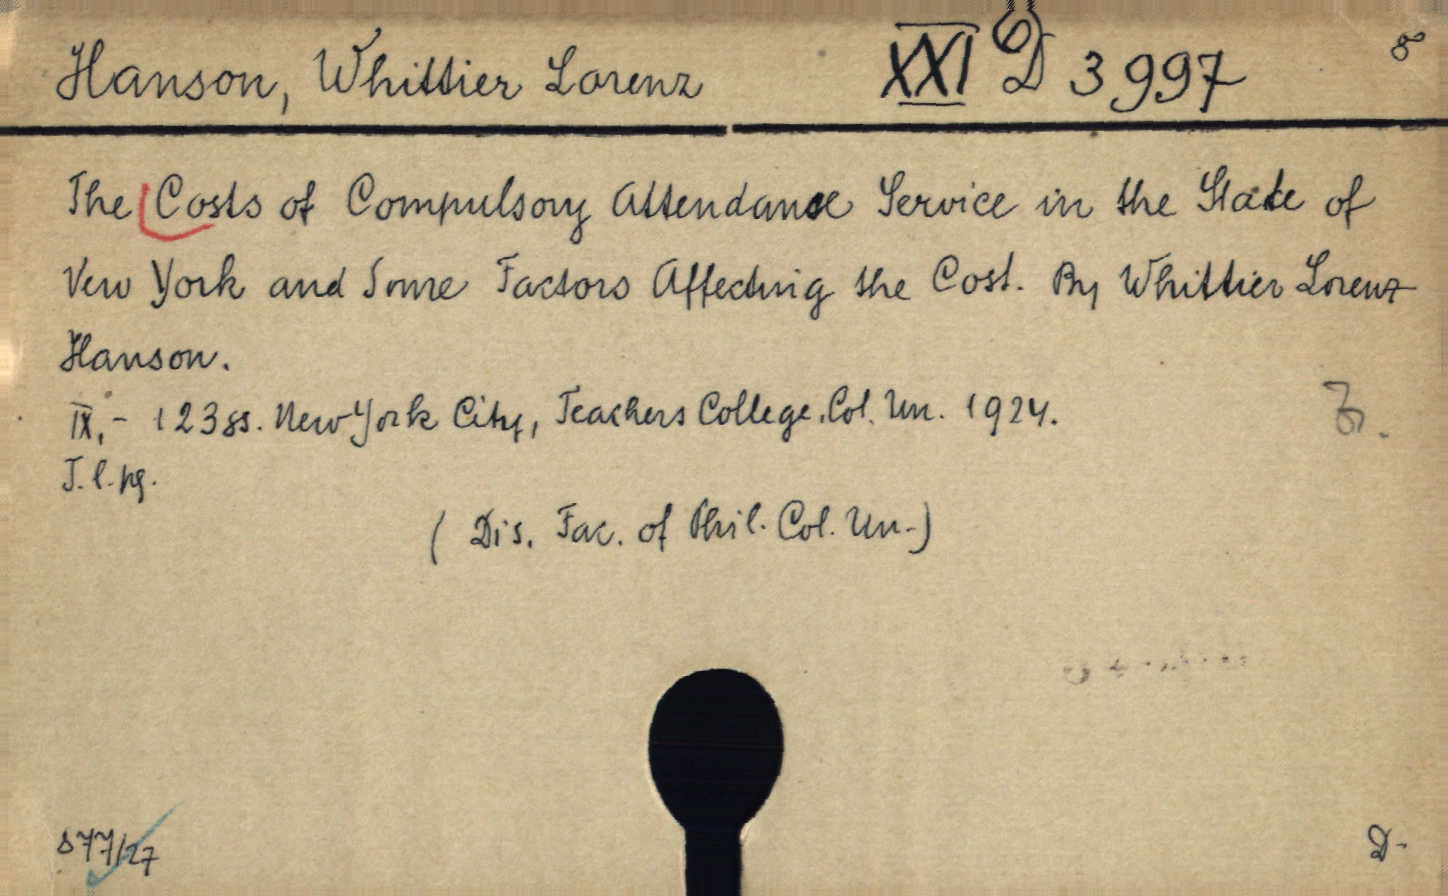 Hanson, Whittier Lorenz XXI D 3997 8
The Costs of Compulsory Attendance Service in the State of
New York and Some Factors Affecting the Cost. By Whittier Lorenz
Hanson.
IX,- 123 ss. New York City, Teachers College, Col. Un. 1924.
T. l. pg.
( Dis. Fac. of Phil. Col. Un.)
577/27 D-